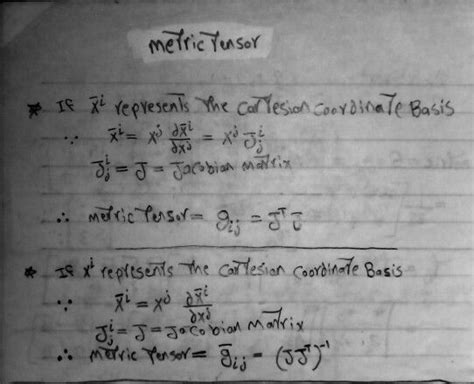 Metric Tensor
* If x̄ⁱ represents the Cartesian Coordinate Basis
∵ x̄ⁱ = xʲ ∂x̄ⁱ/∂xʲ = xʲ Jⁱⱼ
Jⁱⱼ = J = Jacobian Matrix
∴ metric Tensor = gᵢⱼ = Jᵀ J
* If xⁱ represents the Cartesian Coordinate Basis
∵ x̄ⁱ = xʲ ∂x̄ⁱ/∂xʲ
Jⁱⱼ = J = Jacobian Matrix
∴ Metric Tensor = ḡᵢⱼ = (J Jᵀ)⁻¹